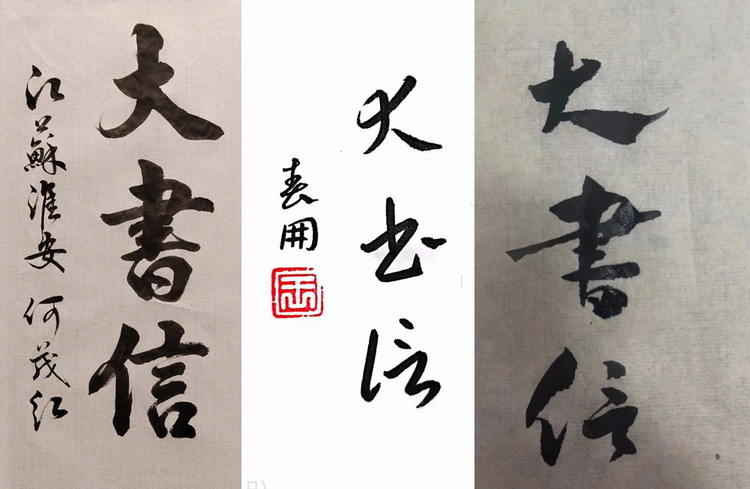 大書信
江蘇淮安 何茂红
大书信
春開
大書信